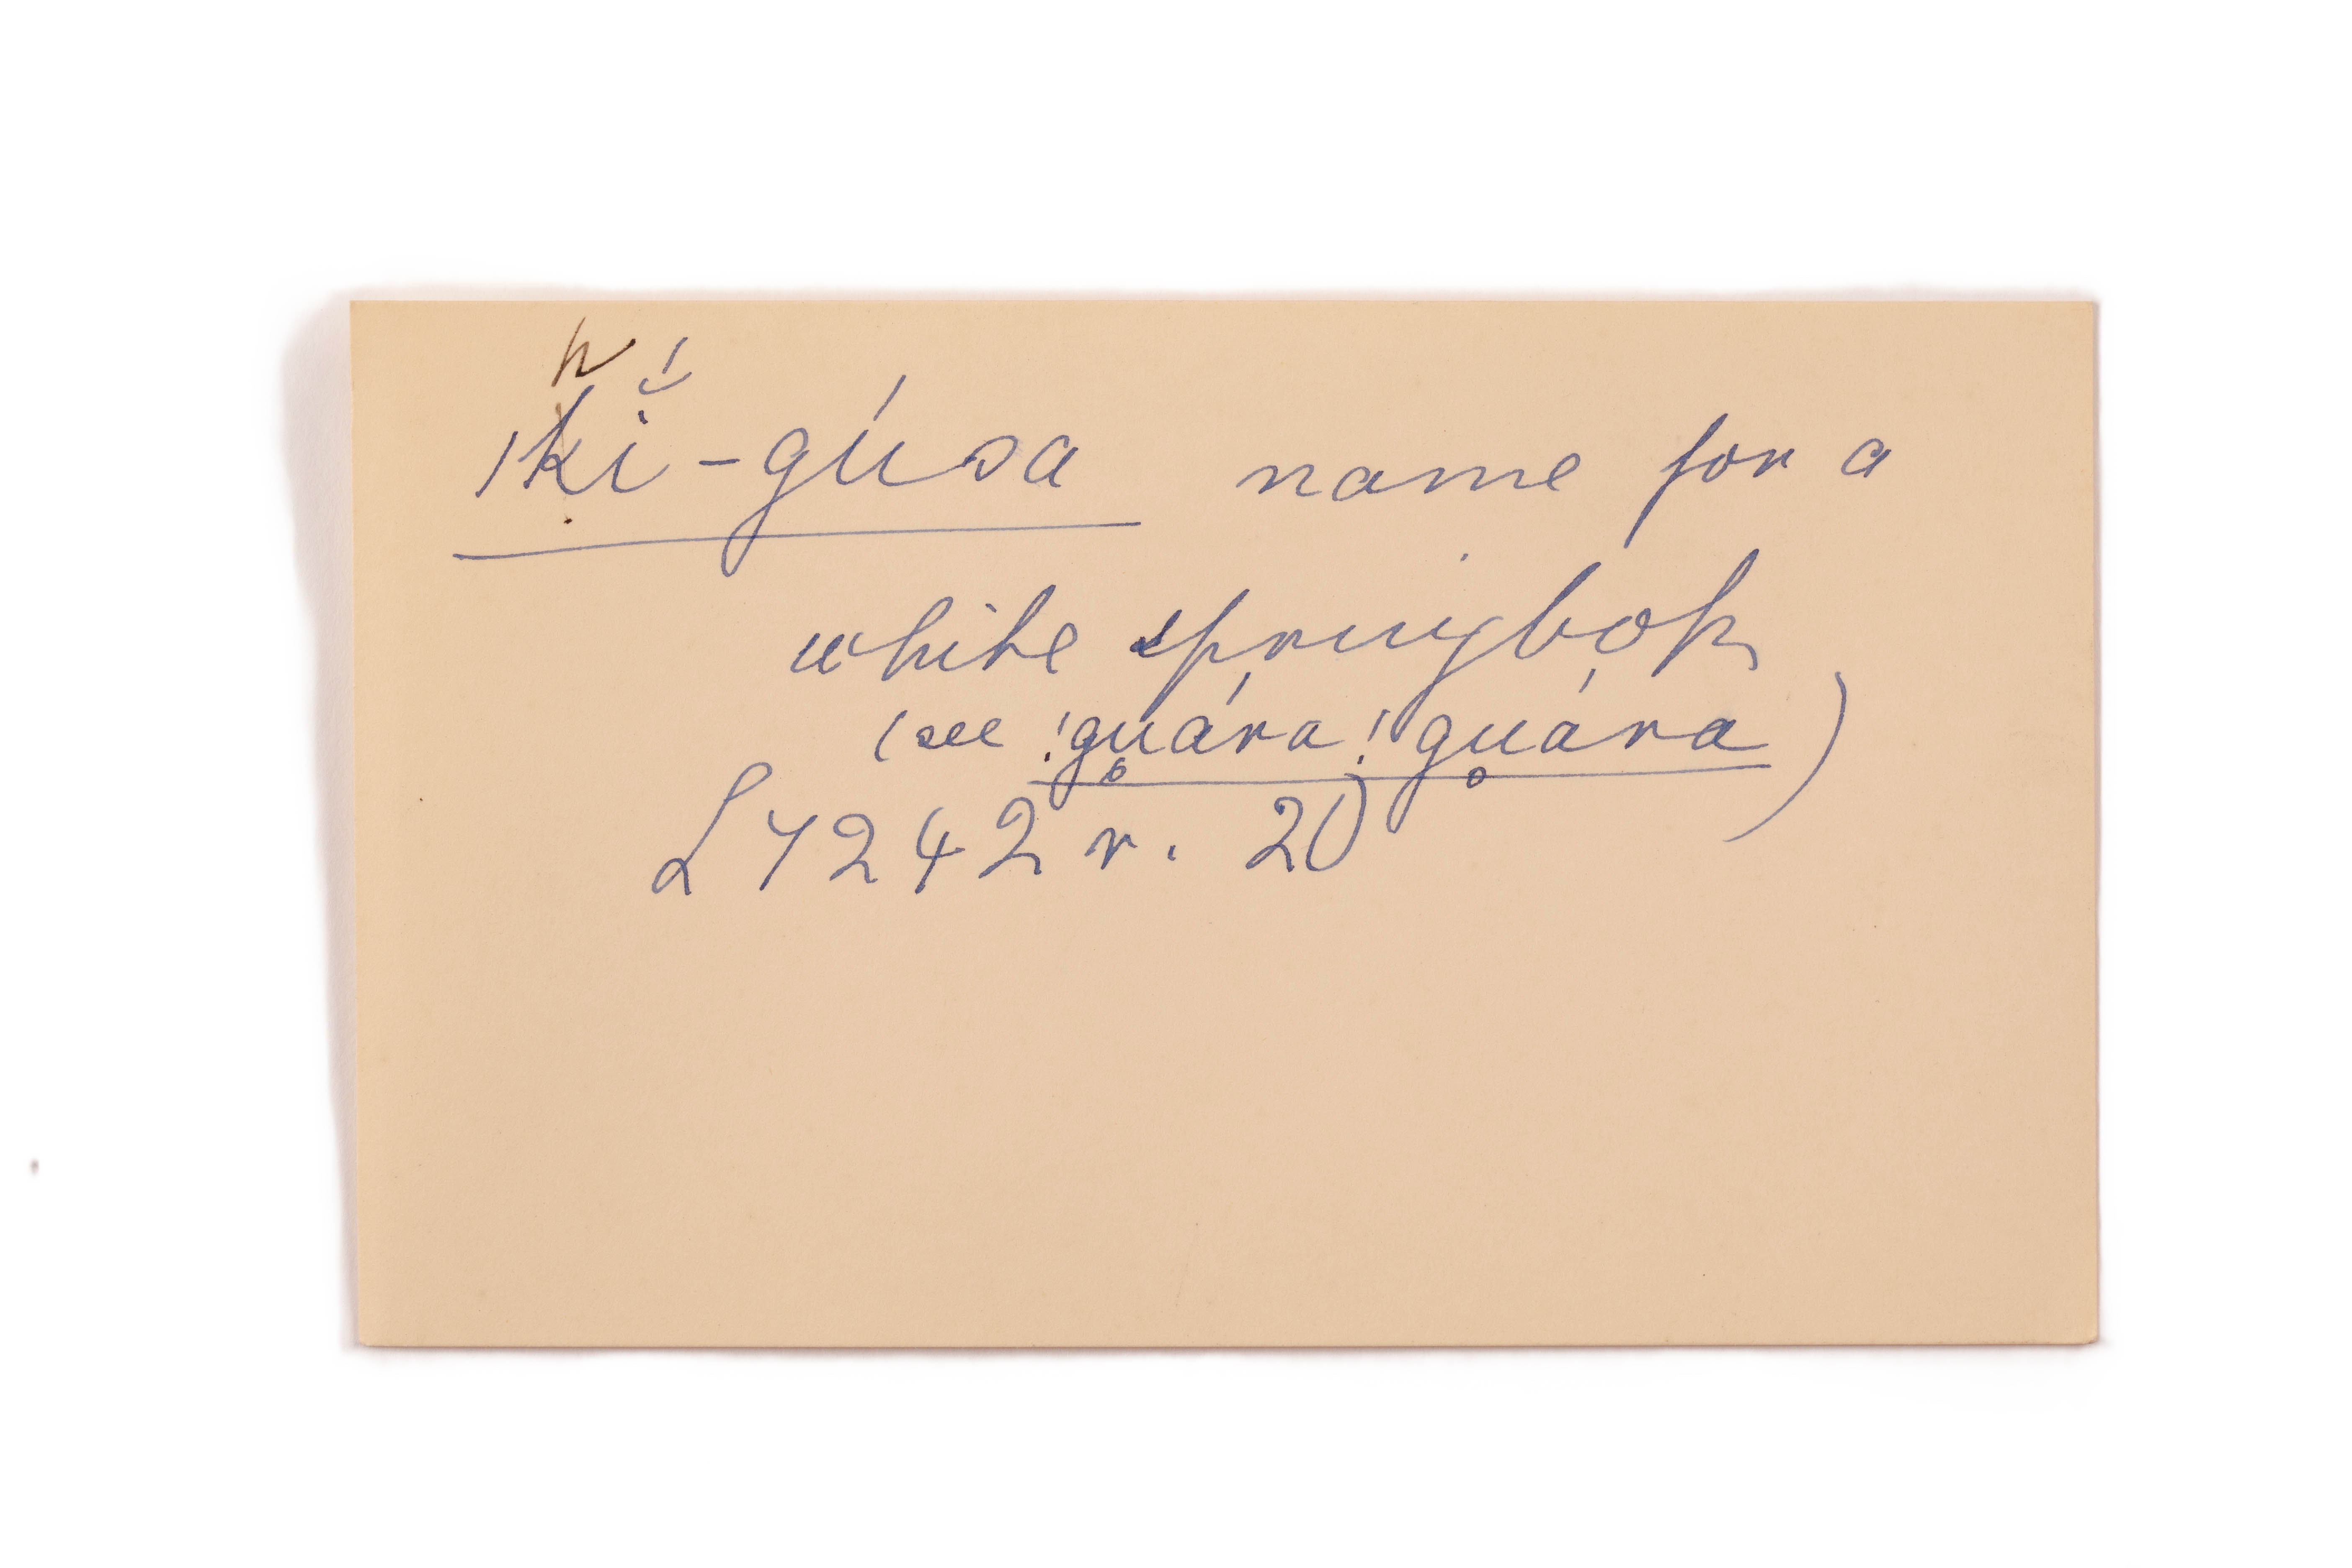 h
ǀkĭ́-gúsa name for a
white springbok
(see !gu̥ára!gu̥ára)
L 7242 r. 20